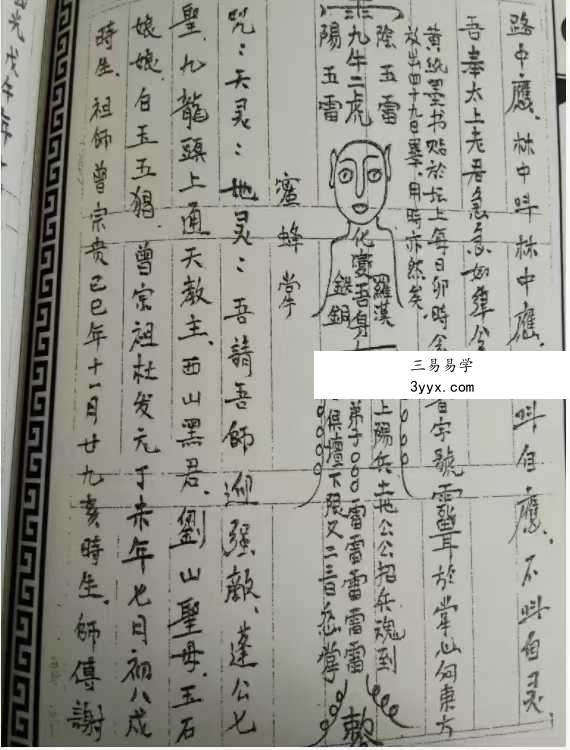 路中應．林中叫林中應．叫自應．不叫自灵．
吾奉太上老君急急如律令
黄紙墨书贴於坛上每日卯時念　首字號　於掌心向東方
放出四十九日畢．用時亦然矣．
陰五雷
九牛二虎
陽五雷
化变吾身
羅漢
鉄銅
上陽兵土地公公招兵魂到
弟子000雷雷雷雷雷
俱壇下
蜜蜂掌
咒：天灵：地灵：吾請吾師迎强敵．蓬公七
聖．九龍頭上通天教主．西山黑君．劉山聖母．玉石
娘娘．白玉五猖．曾宗祖杜发元丁未年七月初八戌
時生．祖師曾宗贵己巳年十一月廿九亥時生．師傅謝
光戊午年
三易易学
3yyx.com